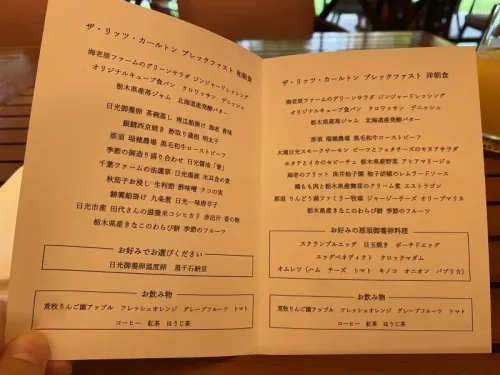 ザ・リッツ・カールトン ブレックファスト 和朝食
海老原ファームのグリーンサラダ ジンジャードレッシング
オリジナルキューブ食パン クロワッサン デニッシュ
栃木県産苺ジャム 北海道産発酵バター
日光御養卵 茶碗蒸し 南瓜餡掛け 海老 青味
銀鱈西京焼き 酢取り蓮根 明太子
那須 瑞穂農場 黒毛和牛ローストビーフ
季節の御造り盛り合わせ 日光醤油「誉」
千葉ファームの法蓮草 日光湯波
秋茄子お浸し 生利節 酢味噌
鰊棒餡掛け 九条葱 日光一味唐辛子
日光市産 田代さんの滋養米コシヒカリ 赤出汁 香の物
栃木県産きなこのわらび餅 季節のフルーツ
お好みでお選びください
日光御養卵温度卵 黒千石納豆
お飲み物
荒牧りんご園アップル フレッシュオレンジ グレープフルーツ トマト
コーヒー 紅茶 ほうじ茶
ザ・リッツ・カールトン ブレックファスト 洋朝食
海老原ファームのグリーンサラダ ジンジャードレッシング
オリジナルキューブ食パン クロワッサン デニッシュ
栃木県産苺ジャム 北海道産発酵バター
那須 瑞穂農場 黒毛和牛ローストビーフ
大滝日光スモークサーモン ビーツとフェタチーズのキヌアサラダ
ホタテとイカのセビーチェ 栃木県産野菜 アヒアマリージョ
海老のフリット 床井柚子園 柚子胡椒のレムラードソース
鶏もも肉と栃木県産舞茸のクリーム煮 エストラゴン
那須 りんどう湖ファミリー牧場 ジャージーチーズ オリーブマリネ
栃木県産きなこのわらび餅 季節のフルーツ
お好みの那須御養卵料理
スクランブルエッグ 目玉焼き ポーチドエッグ
エッグベネディクト クロックマダム
オムレツ（ハム チーズ トマト キノコ オニオン パプリカ）
お飲み物
荒牧りんご園アップル フレッシュオレンジ グレープフルーツ トマト
コーヒー 紅茶 ほうじ茶